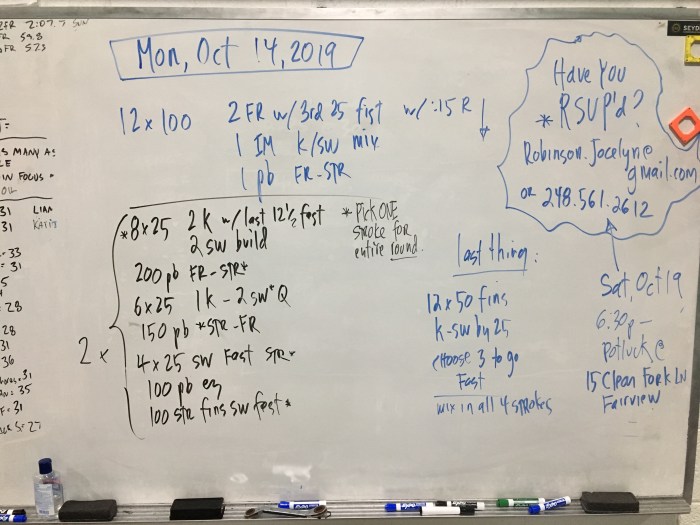 2FR 2:07.7
FR 59.8
FR 523
Mon, Oct 14, 2019
12 x 100 2 FR w/ 3rd 25 fist w/ :15 R ↓
1 IM k/sw mix
1 pb FR-STR
Have You
* RSVP'd?
Robinson.Jocelyn@
gmail.com
or 248.561.2612
S MANY AS
IN FOCUS
31 LIAM
31
33
= 31
5
= 28
28
31
36
= 31
= 35
F = 31
S = 27
2 x
*8x25 2 k w/ last 12½ fast
2 sw build
* Pick ONE
stroke for
entire round.
200 pb FR-STR*
6x25 1k - 2sw* Q
150 pb *STR-FR
4x25 sw Fast STR*
100 pb ez
100 STR fins sw fast *
last thing:
12x50 fins
k-sw by 25
choose 3 to go
Fast
mix in all 4 strokes
Sat, Oct 19
6:30p –
Potluck @
15 Clean Fork LN
Fairview